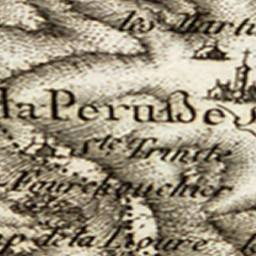 les Marti
la Peruße
Ste Trinité
Fourckouchier
ap. de la Lioure